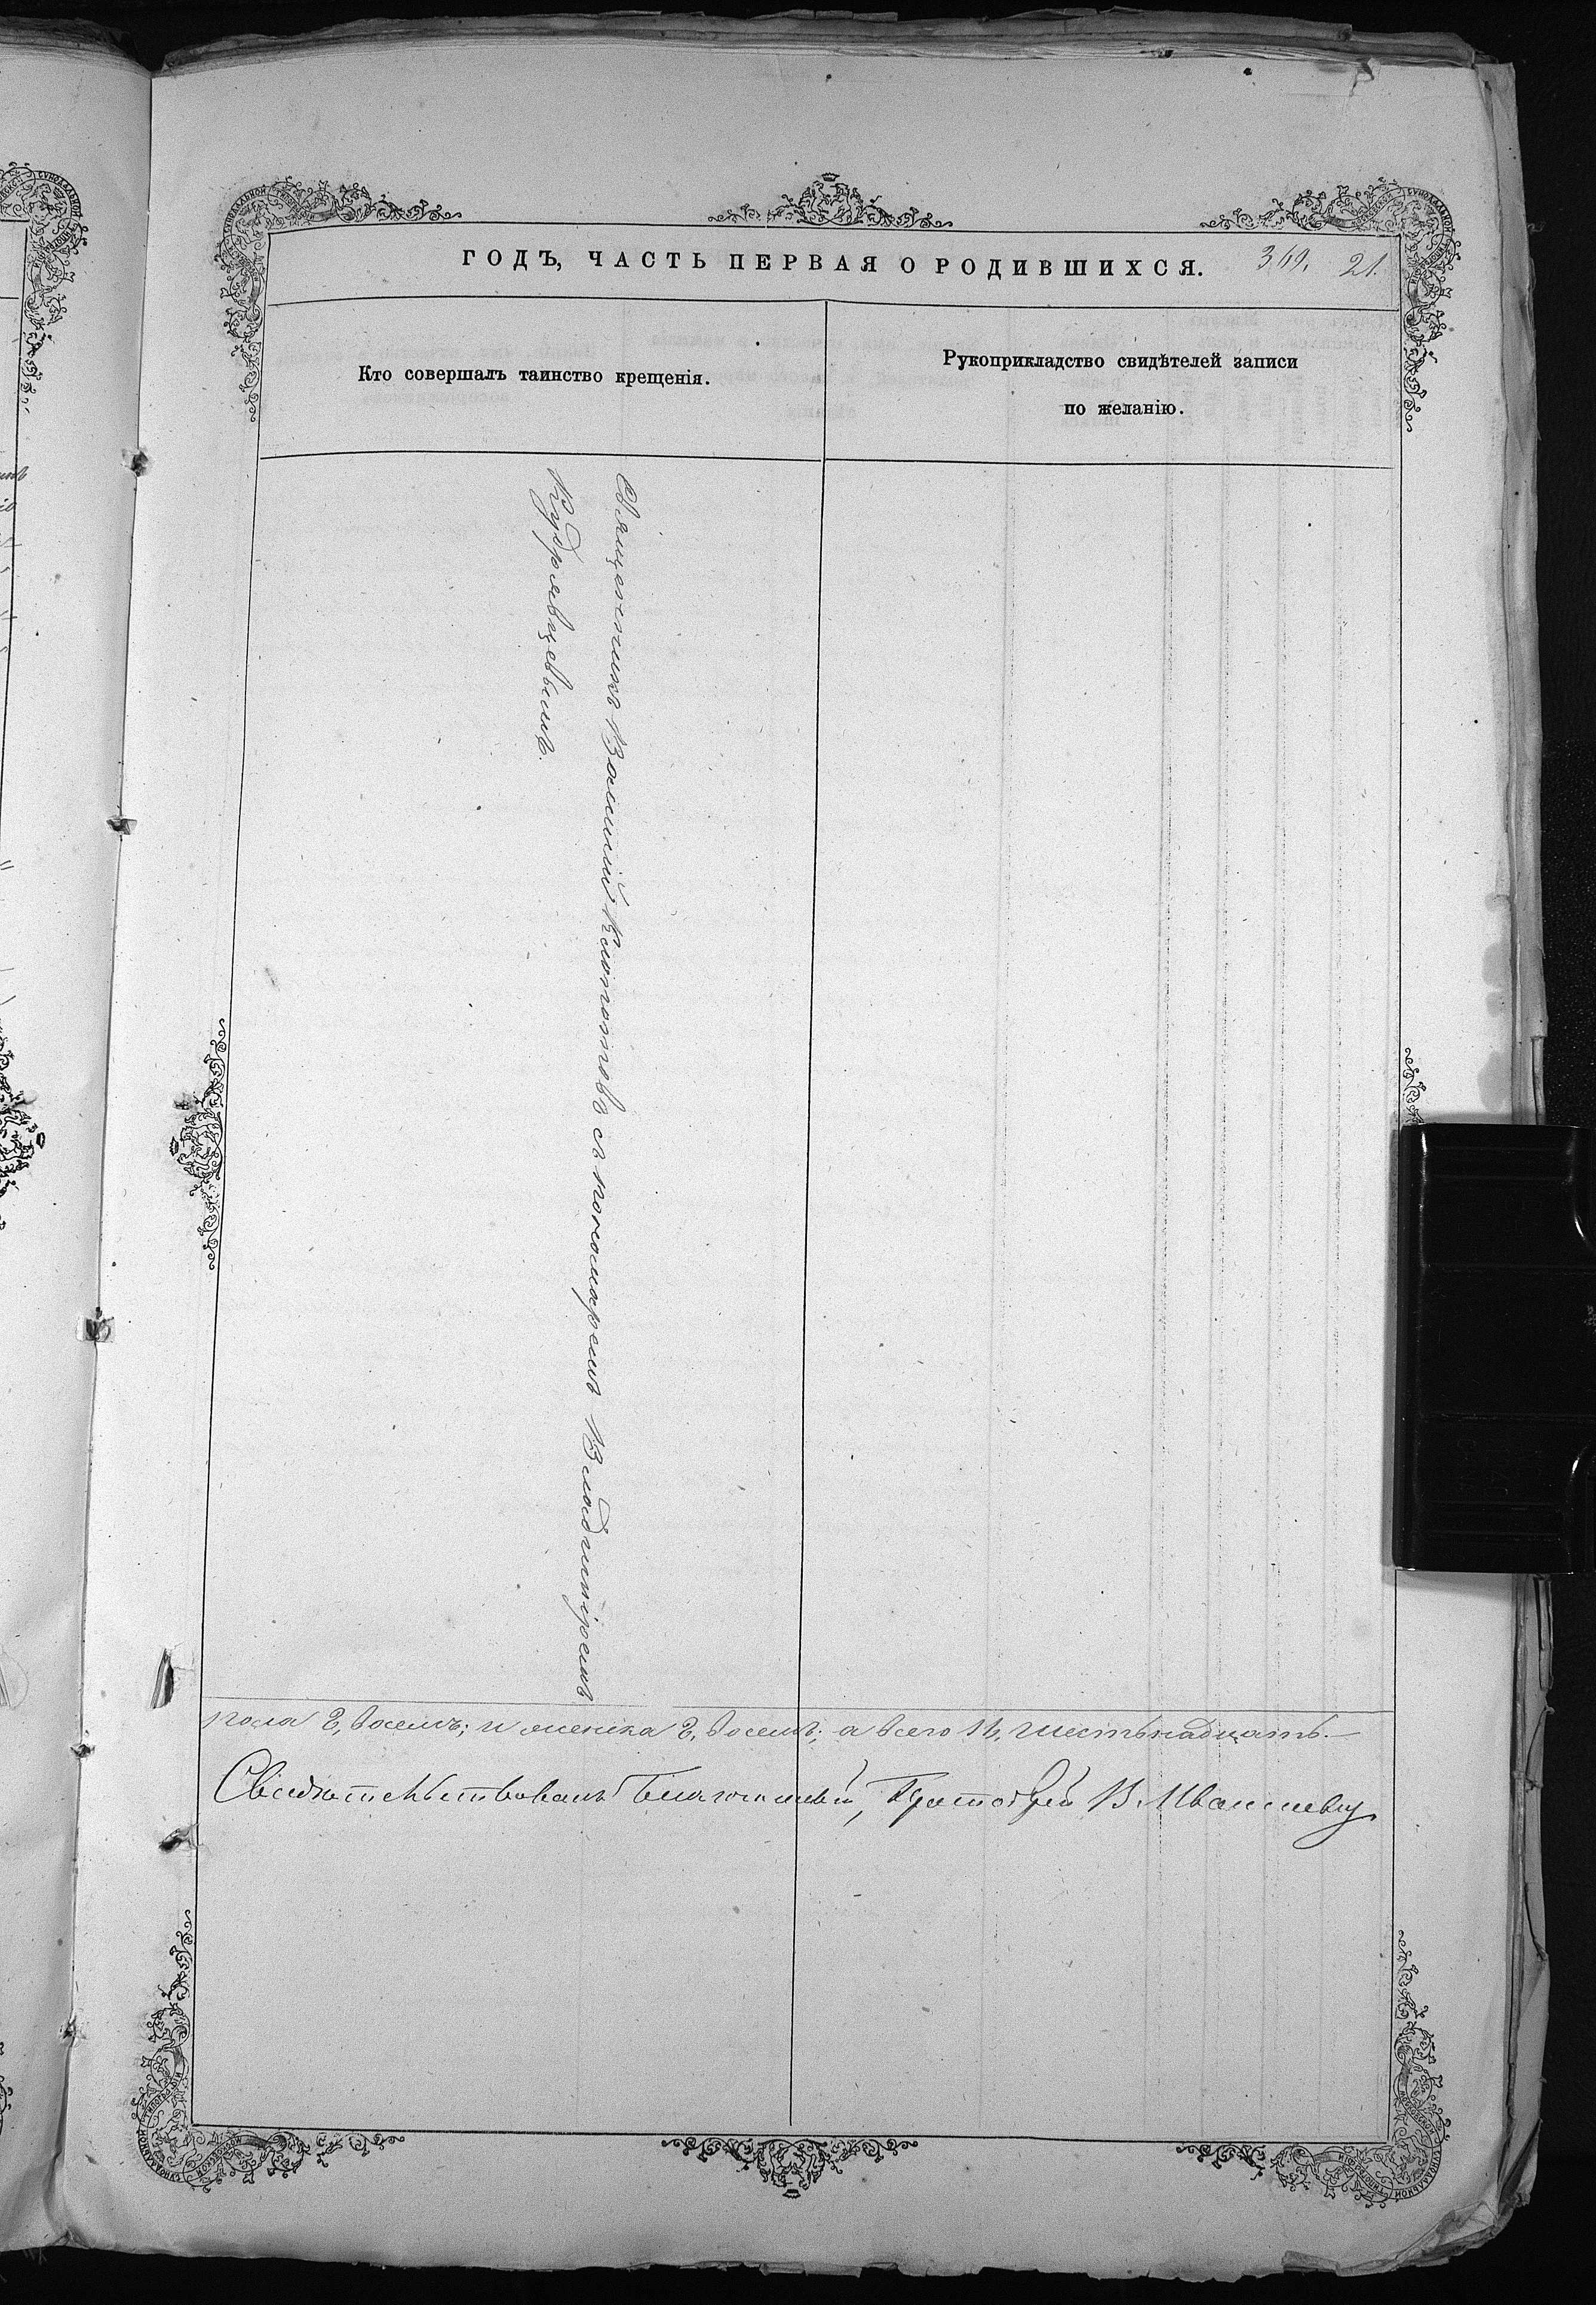 ГОДЪ, ЧАСТЬ ПЕРВАЯ О РОДИВШИХСЯ. 369. 21.
Кто совершалъ таинство крещенія.
Рукоприкладство свидѣтелей записи
по желанію.
Священникъ Василій Клитовъ съ пономаремъ Владиміромъ
Кудрявцевымъ.
пола 8, восемь; и женска 8, восемь; а всего 16, шестьнадцать.
Свидѣтельствовалъ Благочинный, Протоіерей В.